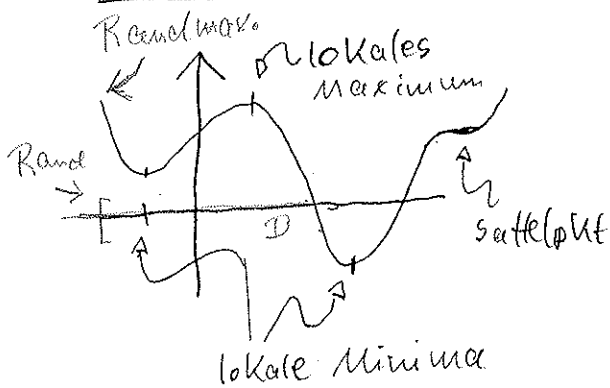 Randmax.
lokales
Maximum
Rand
[
D
Sattelpkt
lokale Minima